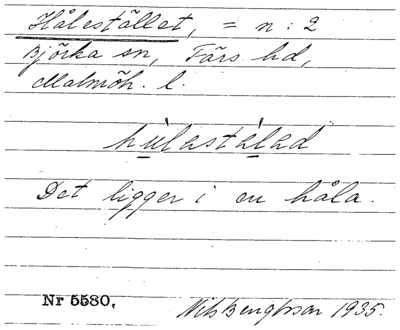 Hålestället, = n:2
Björka sn, Färs hd,
Malmöh. l.
hùlastàlad
Det ligger i en håla.
Nr 5580. Nils Bengtsson 1935.